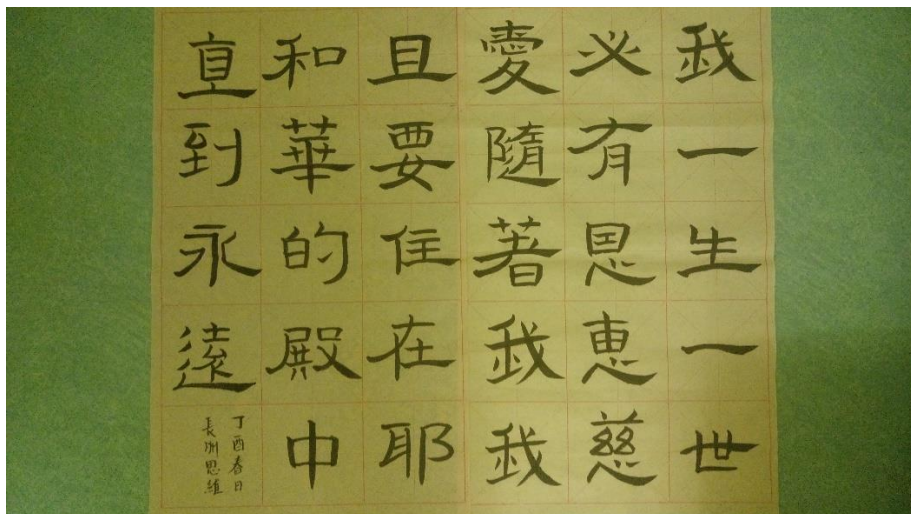 我一生一世
必有恩惠慈
愛隨著我我
且要住在耶
和華的殿中
直到永遠
丁酉春日
長洲思維